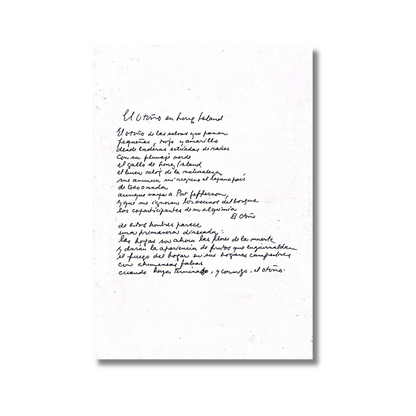 El Otoño en Long Island
El Otoño de las selvas que pasan
pequeñas, rojo y amarillo
desde laderas de
con su plumaje verde
el gallo de Long Island
el buen reloj de la naturaleza
me anuncia mi regreso al lejano país
de todo o nada
aunque vaya a Port Jefferson
y que me ignoran los vecinos del bosque
los coparticipantes de mi alquimia
El Otoño
de estos hombres parece
una primavera disecada:
las hojas son ahora las flores de la muerte
y darán la apariencia de frutos que
el fuego del hogar en sus hogares campestres
con chimeneas falsas
cuando haya terminado, y conmigo, el otoño.